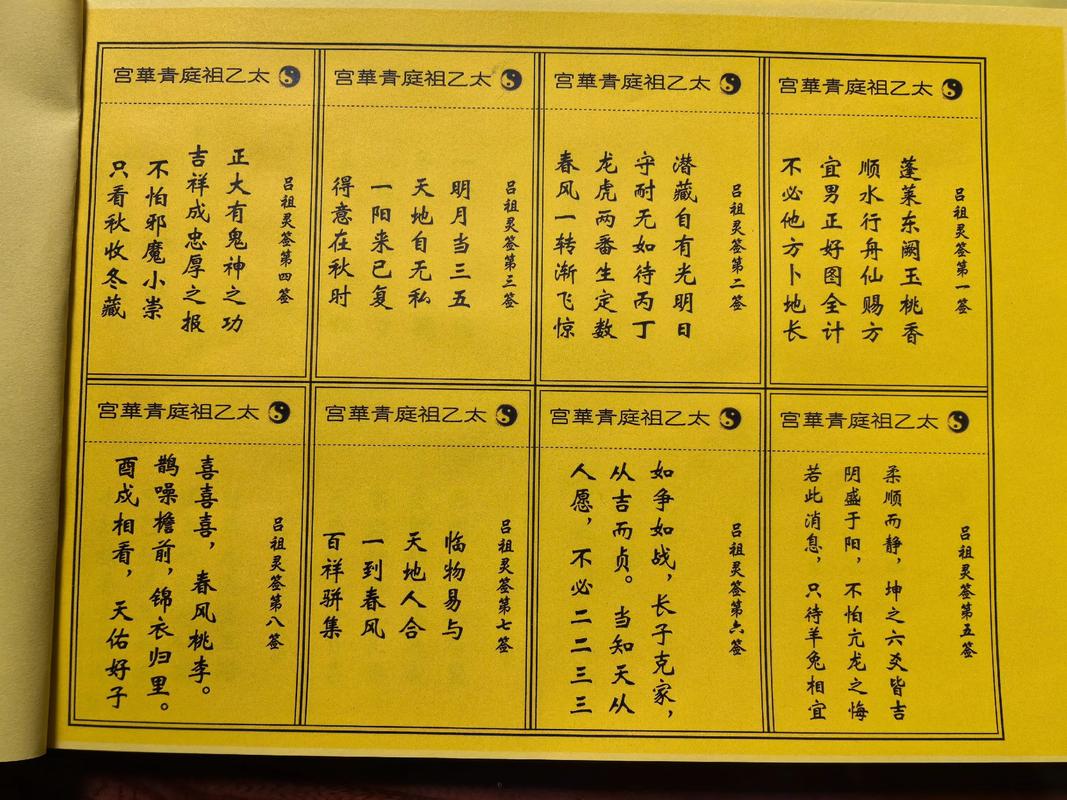 太乙祖庭青華宫
吕祖灵签第一签
蓬莱东阙玉桃香
顺水行舟仙赐方
宜男正好图全计
不必他方卜地长
太乙祖庭青華宫
吕祖灵签第二签
潜藏自有光明日
守耐无如待丙丁
龙虎两番生定数
春风一转渐飞惊
太乙祖庭青華宫
吕祖灵签第三签
明月当三五
天地自无私
一阳来已复
得意在秋时
太乙祖庭青華宫
吕祖灵签第四签
正大有鬼神之功
吉祥成忠厚之报
不怕邪魔小崇
只看秋收冬藏
太乙祖庭青華宫
吕祖灵签第五签
柔顺而静，坤之六爻皆吉
阴盛于阳，不怕亢龙之悔
若此消息，只待羊兔相宜
太乙祖庭青華宫
吕祖灵签第六签
如争如战，长子克家，
从吉而贞。当知天从
人愿，不必二二三三
太乙祖庭青華宫
吕祖灵签第七签
临物易与
天地人合
一到春风
百祥骈集
太乙祖庭青華宫
吕祖灵签第八签
喜喜喜，春风桃李。
鹊噪檐前，锦衣归里。
酉戍相看，天佑好子